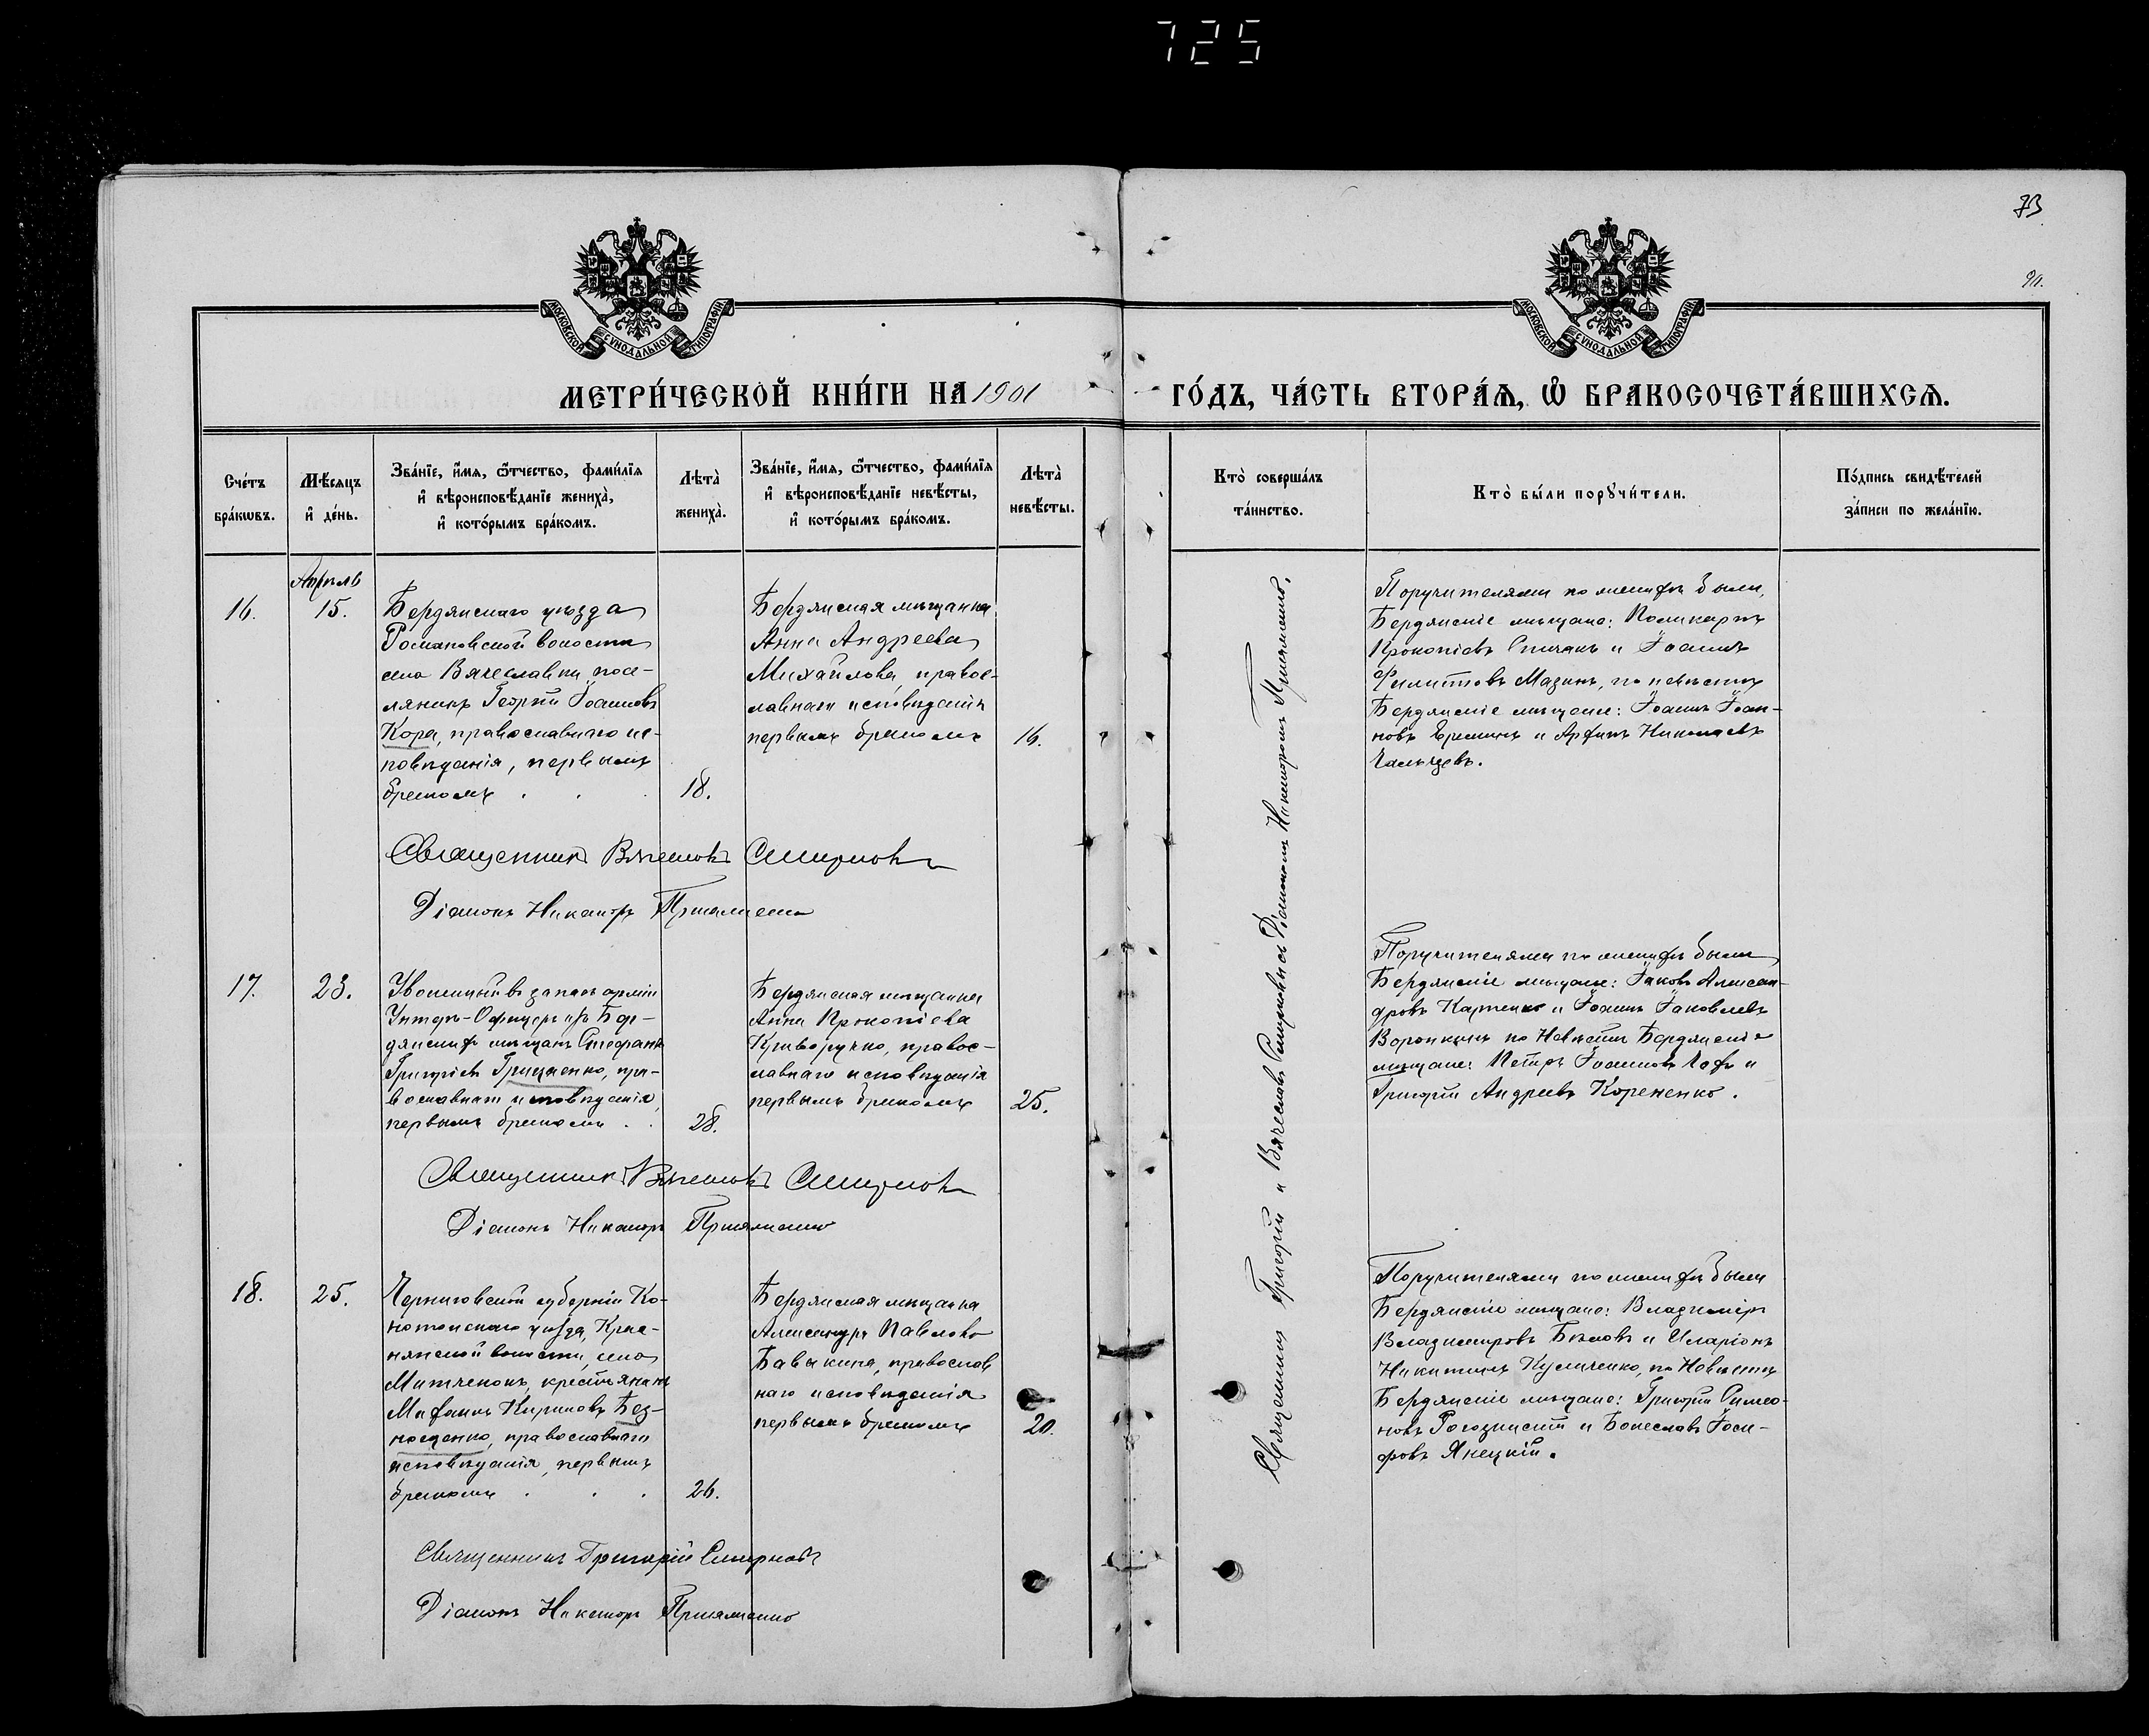 725
73
90.
МОСКОВСКОЙ СѴНОДАЛЬНОЙ ТИПОГРАФІИ
МОСКОВСКОЙ СѴНОДАЛЬНОЙ ТИПОГРАФІИ
МЕТРИ́ЧЕСКОЙ КНИ́ГИ НА 1901 ГО́ДЪ, ЧА́СТЬ ВТОРА́Ѧ, Ѽ БРАКОСОЧЕТА́ВШИХСѦ.
Сче́тъ
бра́кѡвъ.
Мѣ́сяцъ
и҆ де́нь.
Зва́нїе, и҆́мѧ, ѻ҆́тчество, фами́лїѧ
и҆ вѣроисповѣ́данїе жениха̀,
и҆ кото́рымъ бра́комъ.
Лѣта̀
жениха̀.
Зва́нїе, и҆́мѧ, ѻ҆́тчество, фами́лїѧ
и҆ вѣроисповѣ́данїе невѣ́сты,
и҆ кото́рымъ бра́комъ.
Лѣта̀
невѣ́сты.
Кто̀ соверша́лъ
та́инство.
Кто̀ бы́ли порꙋчи́тели.
По́дпись свидѣ́телей
за́писи по жела́нїю.
Апрѣль
16.
15.
Бердянскаго уѣзда
Романовской волости
села Вячеславки посе-
лянинъ Георгій Іоанновъ
Кора, православнаго ис-
повѣданія, первымъ
бракомъ . . .
18.
Бердянская мѣщанка
Анна Андреева
Михайлова, правос-
лавнаго исповѣданія
первымъ бракомъ
16.
Поручителями по женихѣ были,
Бердянскіе мѣщане: Поликарпъ
Прокопіевъ Спичакъ и Іоаннъ
Филипповъ Мазинъ, по невѣстѣ
Бердянскіе мѣщане: Іоаннъ Іоан-
новъ Ереминъ и Николаевъ
Священникъ Вячеславъ Смирновъ
Діаконъ Никаноръ
17.
23.
Уволенный въ запасъ арміи
Унтеръ-Офицеръ изъ Бер-
дянскихъ мѣщанъ Стефанъ
Григорьевъ Грищенко, пра-
вославнаго исповѣданія,
первымъ бракомъ . .
28.
Бердянская мѣщанка
Анна Прокопіева
Криворучко, правос-
лавнаго исповѣданія
первымъ бракомъ
25.
Поручителями по женихѣ были
Бердянскіе мѣщане: Іаковъ Алексан-
дровъ Карпенко и Іоаннъ Іаковлевъ
Воронкинъ по Невѣстѣ Бердянскіе
мѣщане: Петръ Іоанновъ и
Григорій Андреевъ Корененко.
Священникъ Вячеславъ Смирновъ
Діаконъ Никаноръ
18.
25.
Черниговской губерніи Ко-
нотопскаго уѣзда,
волости, села
Митченокъ, крестьянинъ
Кириловъ Без-
носенко, православнаго
исповѣданія, первымъ
бракомъ . . .
26.
Бердянская мѣщанка
Александра Павлова
Бавыкина, православ
наго исповѣданія
первымъ бракомъ
20.
Поручителями по женихѣ были
Бердянскіе мѣщане: Владиміръ
Владиміровъ Бѣловъ и Иларіонъ
Никитинъ Кумиченко, по Невѣстѣ
Бердянскіе мѣщане: Григорій Симео-
новъ и Болеславъ Іоси-
фовъ Янецкій.
Священникъ Григорій Смирновъ
Діаконъ Никаноръ
Священники Григорій и Вячеславъ Смирновы съ Діакономъ Никаноромъ